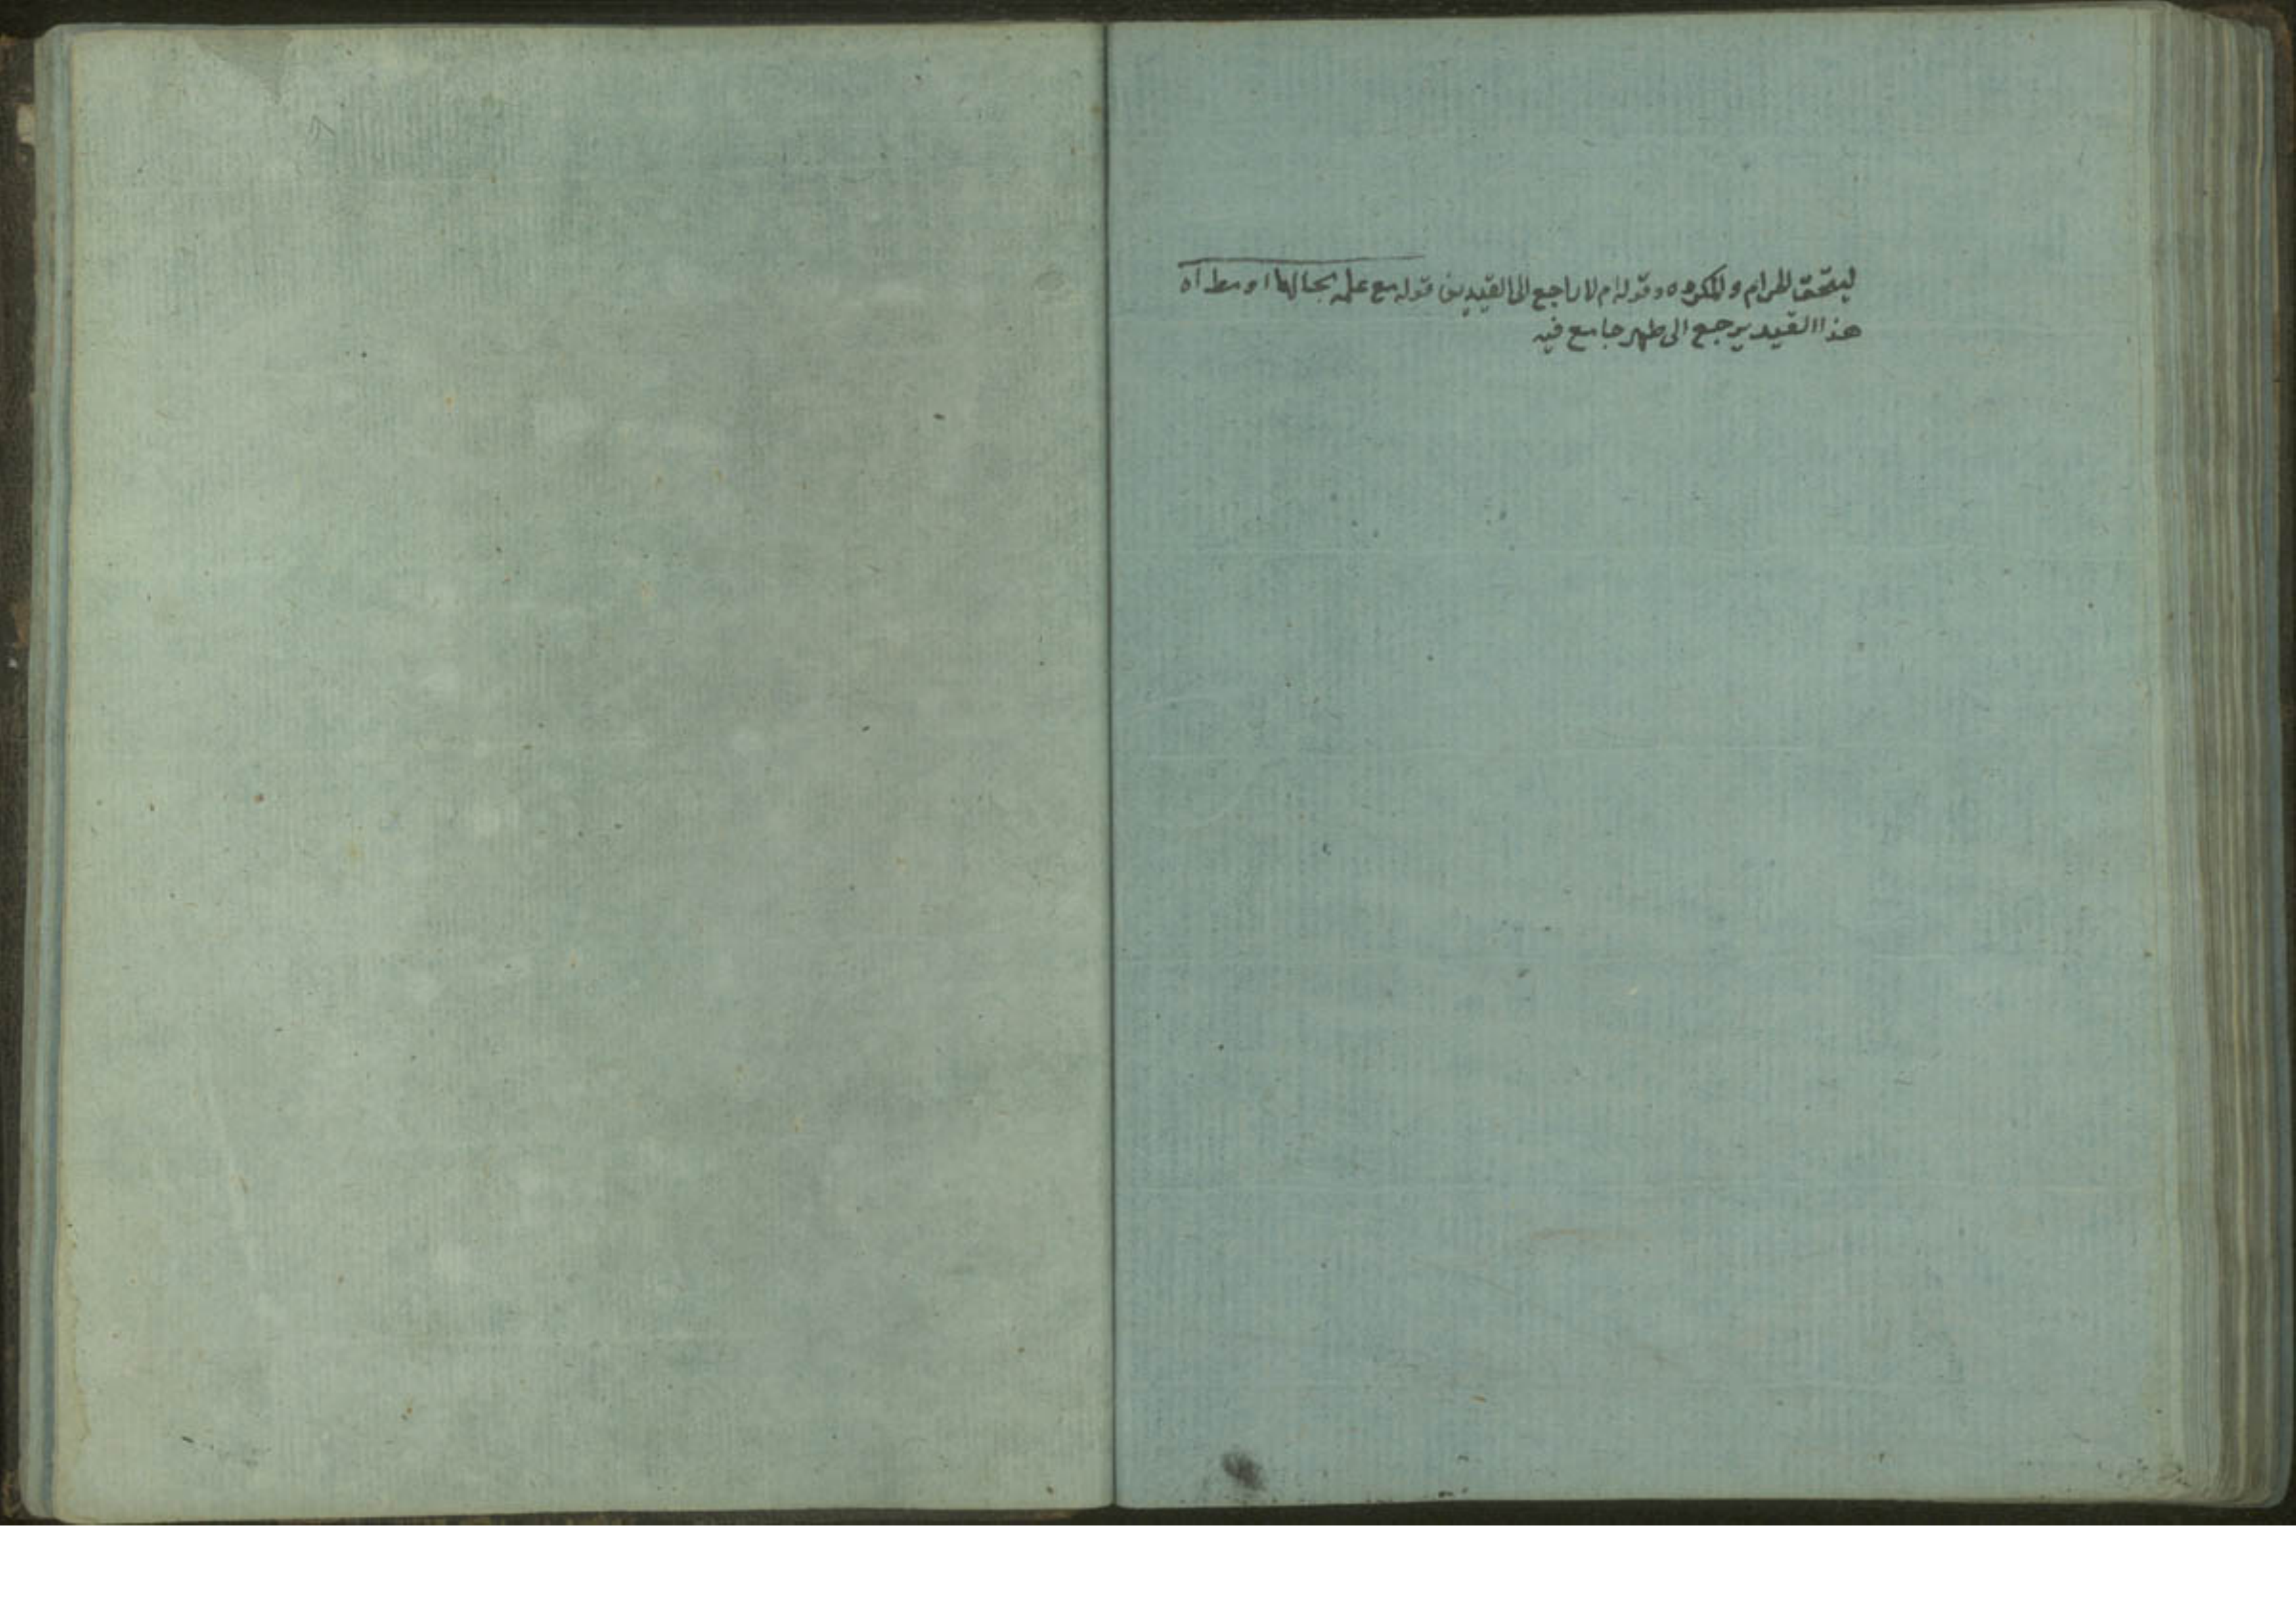 ليتحقق الحرام والمكروه وقوله ام لا راجع الى القيدين قوله مع علمه بحالها او مطاه
هذا القيد يرجع الى طهر جامع فيه